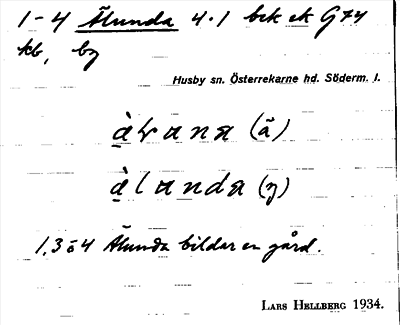 1-4 Ålunda 4.1 bek ek G74
kb, by
Husby sn. Österrekarne hd. Söderm. l.
(ä)
àlanda (y)
1,3 o 4 Ålunda bildar en gård.
LARS HELLBERG 1934.